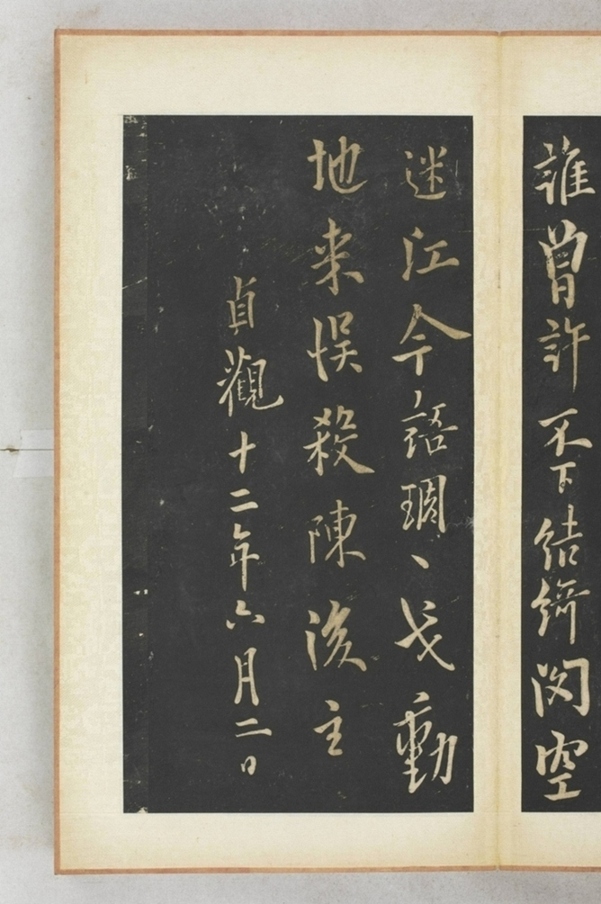 誰曾許不下結綺閣空
迷江令語琱丶戈動
地来悮殺陳後主
貞觀十二年六月二日